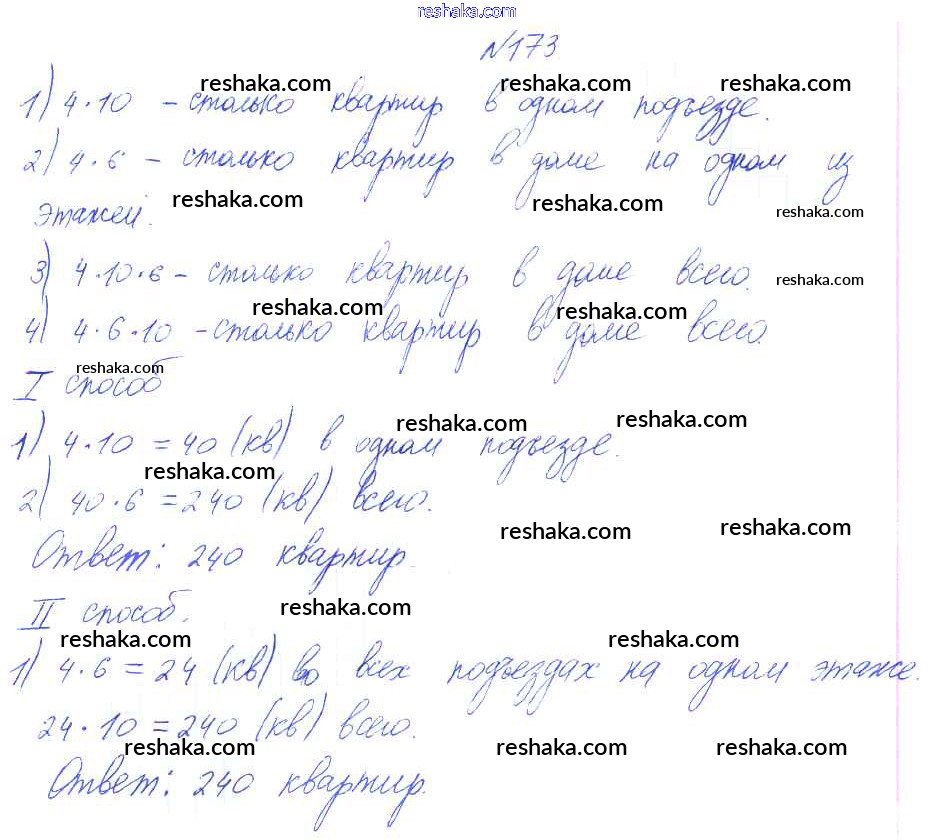 reshaka.com
№173
reshaka.com reshaka.com reshaka.com
1) 4·10 – столько квартир в одном подъезде.
2) 4·6 – столько квартир в доме на одном из
reshaka.com reshaka.com reshaka.com
этажей.
3) 4·10·6 – столько квартир в доме всего.
reshaka.com
reshaka.com reshaka.com
4) 4·6·10 – столько квартир в доме всего.
reshaka.com
I способ
reshaka.com reshaka.com
1) 4·10 = 40 (кв) в одном подъезде.
reshaka.com
2) 40·6 = 240 (кв) всего.
reshaka.com reshaka.com
Ответ: 240 квартир.
reshaka.com
II способ.
reshaka.com reshaka.com
1) 4·6 = 24 (кв) во всех подъездах на одном этаже.
24·10 = 240 (кв) всего.
reshaka.com reshaka.com reshaka.com
Ответ: 240 квартир.